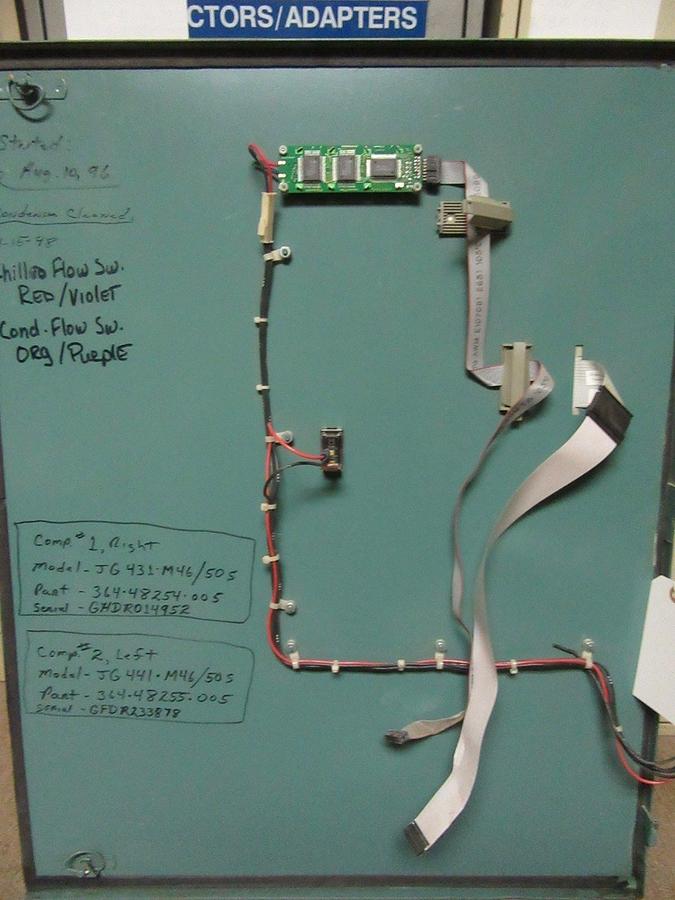 CTORS/ADAPTERS
Started:
Aug. 10, 96
ondenser Cleaned
-15-98
hilled Flow Sw.
RED/VIOLET
Cond. Flow Sw.
ORG/PurplE
Comp.# 1, Right
Model - JG 431-M46/50S
Part - 364-48254-005
Serial - GHDR014952
Comp.# 2, Left
Model - JG 441-M46/50S
Part - 364-48255-005
Serial - GFDR233878